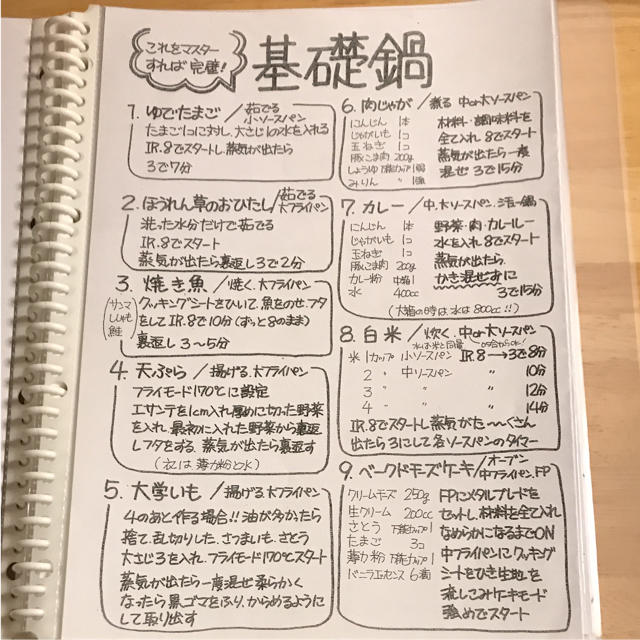 これをマスター
すれば完璧!
基礎鍋
1. ゆでたまご/茹でる 小ソースパン
たまご1コに対し、大さじ1の水を入れる
IR.8でスタートし蒸気が出たら
3で7分
2. ほうれん草のおひたし/茹でる 大フライパン
洗った水分だけで茹でる
IR.8でスタート
蒸気が出たら裏返し3で2分
3. 焼き魚/焼く、大フライパン
サンマ
ししゃも
鮭
クッキングシートをひいて、魚をのせ、フタ
をしてIR.8で10分(ずっと8のまま)
裏返し3〜5分
4. 天ぷら/揚げる、大フライパン
フライモード170℃に設定
エサンテを1cm入れ厚めに切った野菜
を入れ、最初に入れた野菜から裏返
しフタをする。蒸気が出たら裏返す
(衣は薄力粉と水)
5. 大学いも/揚げる、大フライパン
4のあと作る場合!!油が多かったら
捨て、乱切りした、さつまいも、さとう
大さじ3を入れ、フライモード170℃スタート
蒸気が出たら一度混ぜ柔らかく
なったら黒ゴマをふり、からめるようにし
て取り出す
6. 肉じゃが/煮る 中or大ソースパン
にんじん 1本
じゃがいも 1コ
玉ねぎ 1コ
豚こま肉 200g
しょうゆ 万能カップ1弱
みりん 〃 1強
材料・調味料を
全て入れ8でスタート
蒸気が出たら一度
混ぜ 3で15分
7. カレー/中、大ソースパン、
にんじん 1本
じゃがいも 1コ
玉ねぎ 1コ
豚こま肉 200g
カレー粉 中箱1
水 400cc
野菜・肉・カレールー
水を入れ 8でスタート
蒸気が出たら、
かき混ぜずに
3で15分
(大箱の時は水は800cc!!)
8. 白米/炊く、中or大ソースパン
水はお米と同量
米1カップ 小ソースパン IR.8→3で8分
2〃 中ソースパン 〃 10分
3〃 〃 〃 12分
4〃 〃 〃 14分
IR.8でスタートし蒸気がた〜くさん
出たら3にして各ソースパンのタイマー
9. ベークドモーズケーキ/オーブン 中フライパン、FP
クリームモーズ 250g
生クリーム 200cc
さとう 万能カップ1
たまご 3コ
薄力粉 万能カップ1
バニラエッセンス 6滴
FPにメタルブレードを
セットし、材料を全て入れ
なめらかになるまでON
中フライパンにクッキング
シートをひき生地を
流しこみケーキモード
強めでスタート